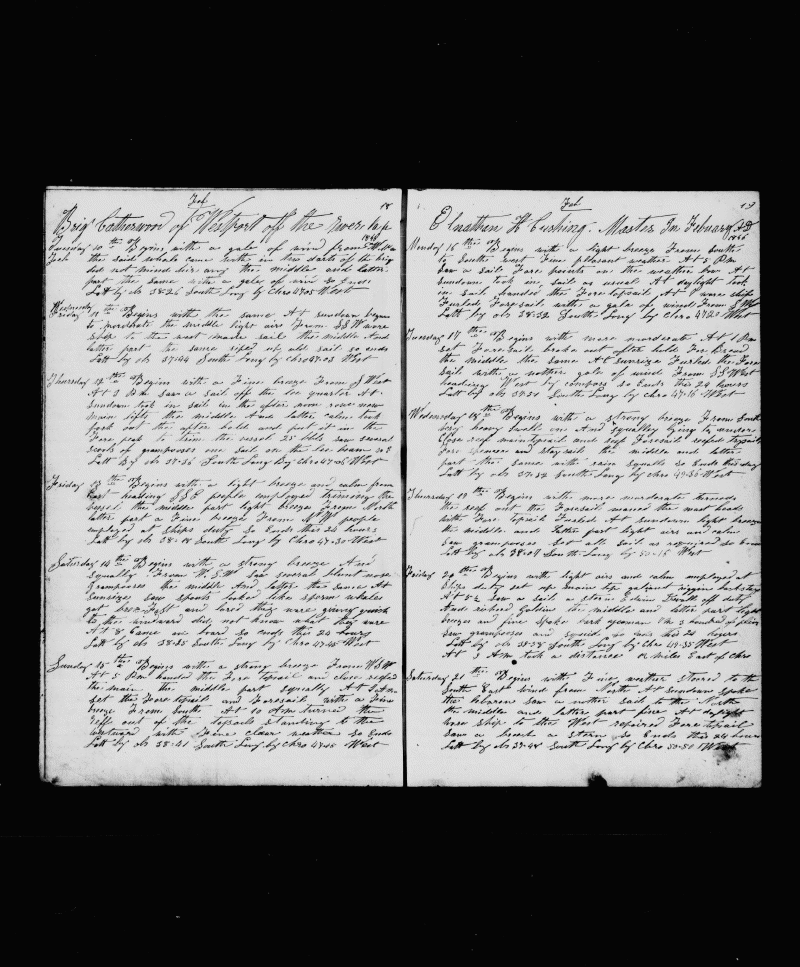 Feb 18
Brig Catherwood of Westport off the River Lap
1846
Tuesday 10th Begins with a gale of wind from
Feb the said whale came with in two darts of the brig
did not mind her any the middle and latter
part the same with a gale of wind so Ends
Latt by obs 38.26 South Long by Chro 47.03 West
Wednesday
Friday 11th Begins with the same At sundown began
to moderate the middle light airs from SSW wore
ship to the west made sail the middle And
latter part the same riped up old sail so ends
Latt by obs 37.44 South Long by Chro 47.03 West
Thursday 12th Begins with a Fine breeze From S West
At 3 PM saw a sail off the lee quarter At
Sundown took in sail in the after now row now
main lifts the middle And latter calm took
fork out the after hold and put it in the
Fore peak to trim the vessel 25 bbls saw several
scools of grampuses one sail on the lee beam so E
Latt By obs 37.56 South Long By Chro 47.06 West
Friday 13th Begins with a light breeze and calm from
East heading SSE people employed trimming the
vessel the middle part light breeze From North
latter part a Fine breeze From NW people
employed at Ships duty so Ends this 24 hours
Latt by obs 38.08 South Long by Chro 47.30 West
Saturday 14th Begins with a strong breeze And
Squally From W.S.W saw several blunt nose
Grampuses the middle And latter the same At
sunrise saw spouts looked like sperm whales
got breakfast and lored they were going quick
to the windward did not know what they were
At 8 Came on board so ends this 24 hours
Latt by obs 38.25 South Long by Chro 47.45 West
Sunday 15th Begins with a strong breeze From WSW
At 5 PM handed the Fore Topsail and close reefed
the main the middle part squally At 4 Am
set the Fore topsail and Foresail with a Fine
breeze from South At 10 Am turned the
reff out of the topsails standing to the
westward with Fine clear weather so Ends
Latt by obs 38.41 South Long by Chro 47.45 West
Feb 19
Elnathan H Cushing Master In Febuary AD
1846
Monday 16th Begins with a light breeze From South
to South west Fine pleasant weather At 5 PM
saw a sail Four points on the weather bow At
Sundown took in sail as usual At daylight took
in sail handed the Fore topsail At 8 wore ship
Furled Foresail with a gale of wind From S West
Latt by obs 38.32 South Long by Chro 47.20 West
Tuesday 17th Begins with more moderate At 1 PM
set Foresail broke out after hold For bread
the middle the same At Sunrise Furled the Fore
sail with a nother gale of wind From SSWest
heading West by compas so Ends this 24 hours
Latt by obs 37.51 South Long by Chro 47.16 West
Wednesday 18th Begins with a strong breeze From South
very heavy swell on And squally lying to under
Close reef maintopsail and reef Foresail reefed trysail
Fore spencer and stay sail the middle and latter
part the same with rain squalls so Ends this day
Latt by obs 37.52 South Long by Chro 47.56 West
Thursday 19th Begins with more moderate turned
the reef out the Foresail maned the mast heads
with Fore topsail Furled At sundown light breeze
the middle and Latter part light airs and calm
saw grampuses Set all sail as required so Ends
Latt By obs 38.09 South Long by 50.15 West
Friday 20th Begins with light airs and calm employed at
Ships duty set up main top galant riggin backstays
At 5½ saw a sail a stern Edwin Devoll off duty
And richard Goldin the middle and latter part light
breezes and fine spoke bark yeoman
saw grampuses and squid so ends this 24 hours
Latt by obs 38.38 South Long by Chro 49.35 West
At 3 Am took a distance 02 miles East of Chro
Saturday 21th Begins with Fine weather steered to the
South East wind from North At Sundown spoke
the hebron saw a nother sail to the North
the middle and latter part fine At daylight
wore ship to the West repaired Fore topsail
saw a breach a stern so Ends this 24 hours
Latt by obs 39.48 South Long by Chro 50.50 West